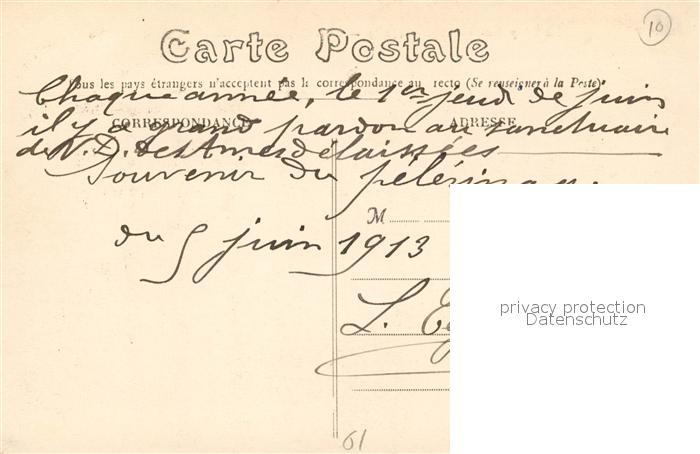 10
Carte Postale
Tous les pays étrangers n'acceptent pas la correspondance au recto (Se renseigner à la Poste)
Chaque année, le 1er jeudi de juin
CORRESPONDANCE ADRESSE
il y a grand pardon au sanctuaire
de N. D. des Ames délaissées
Souvenir du pélérinage
M
du 5 juin 1913
privacy protection
Datenschutz
L.
61